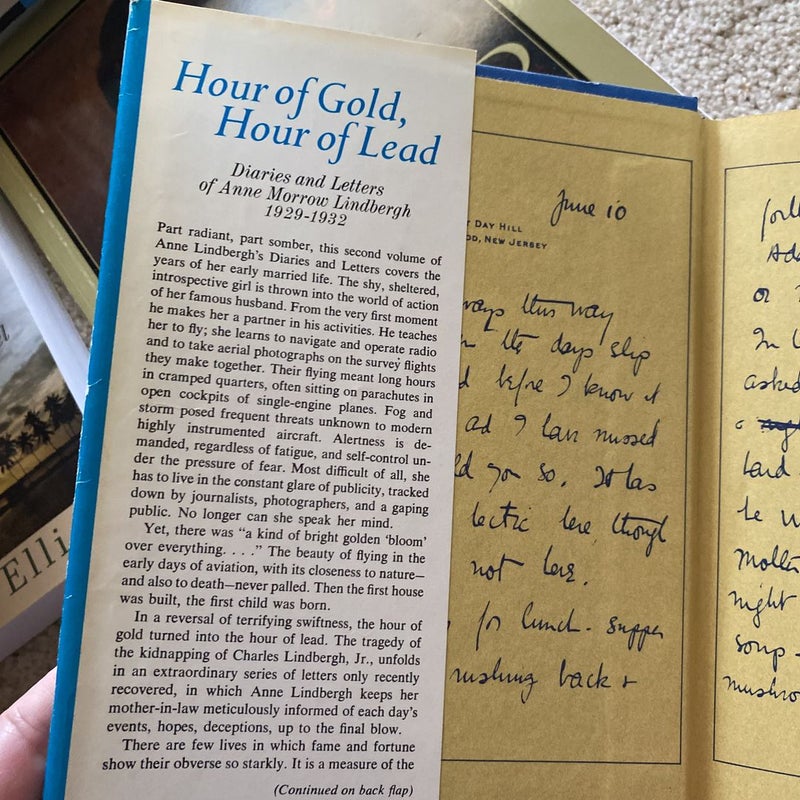 Hour of Gold,
Hour of Lead
Diaries and Letters
of Anne Morrow Lindbergh
1929-1932
Part radiant, part somber, this second volume of
Anne Lindbergh's Diaries and Letters covers the
years of her early married life. The shy, sheltered,
introspective girl is thrown into the world of action
of her famous husband. From the very first moment
he makes her a partner in his activities. He teaches
her to fly; she learns to navigate and operate radio
and to take aerial photographs on the survey flights
they make together. Their flying meant long hours
in cramped quarters, often sitting on parachutes in
open cockpits of single-engine planes. Fog and
storm posed frequent threats unknown to modern
highly instrumented aircraft. Alertness is de-
manded, regardless of fatigue, and self-control un-
der the pressure of fear. Most difficult of all, she
has to live in the constant glare of publicity, tracked
down by journalists, photographers, and a gaping
public. No longer can she speak her mind.
Yet, there was "a kind of bright golden 'bloom'
over everything. . . ." The beauty of flying in the
early days of aviation, with its closeness to nature—
and also to death—never palled. Then the first house
was built, the first child was born.
In a reversal of terrifying swiftness, the hour of
gold turned into the hour of lead. The tragedy of
the kidnapping of Charles Lindbergh, Jr., unfolds
in an extraordinary series of letters only recently
recovered, in which Anne Lindbergh keeps her
mother-in-law meticulously informed of each day's
events, hopes, deceptions, up to the final blow.
There are few lives in which fame and fortune
show their obverse so starkly. It is a measure of the
(Continued on back flap)
June 10
DAY HILL
OD, NEW JERSEY
ways this way
the days slip
before I know it
ad I have missed
ld you so. It has
lectic here though
not
for lunch - supper
rushing back +
or
In
asked
a
he w
night
soup -
mushro
Elli